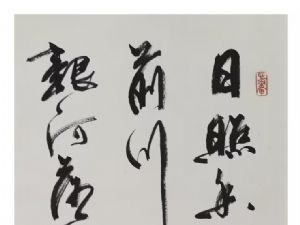 日照香
前川
銀河落